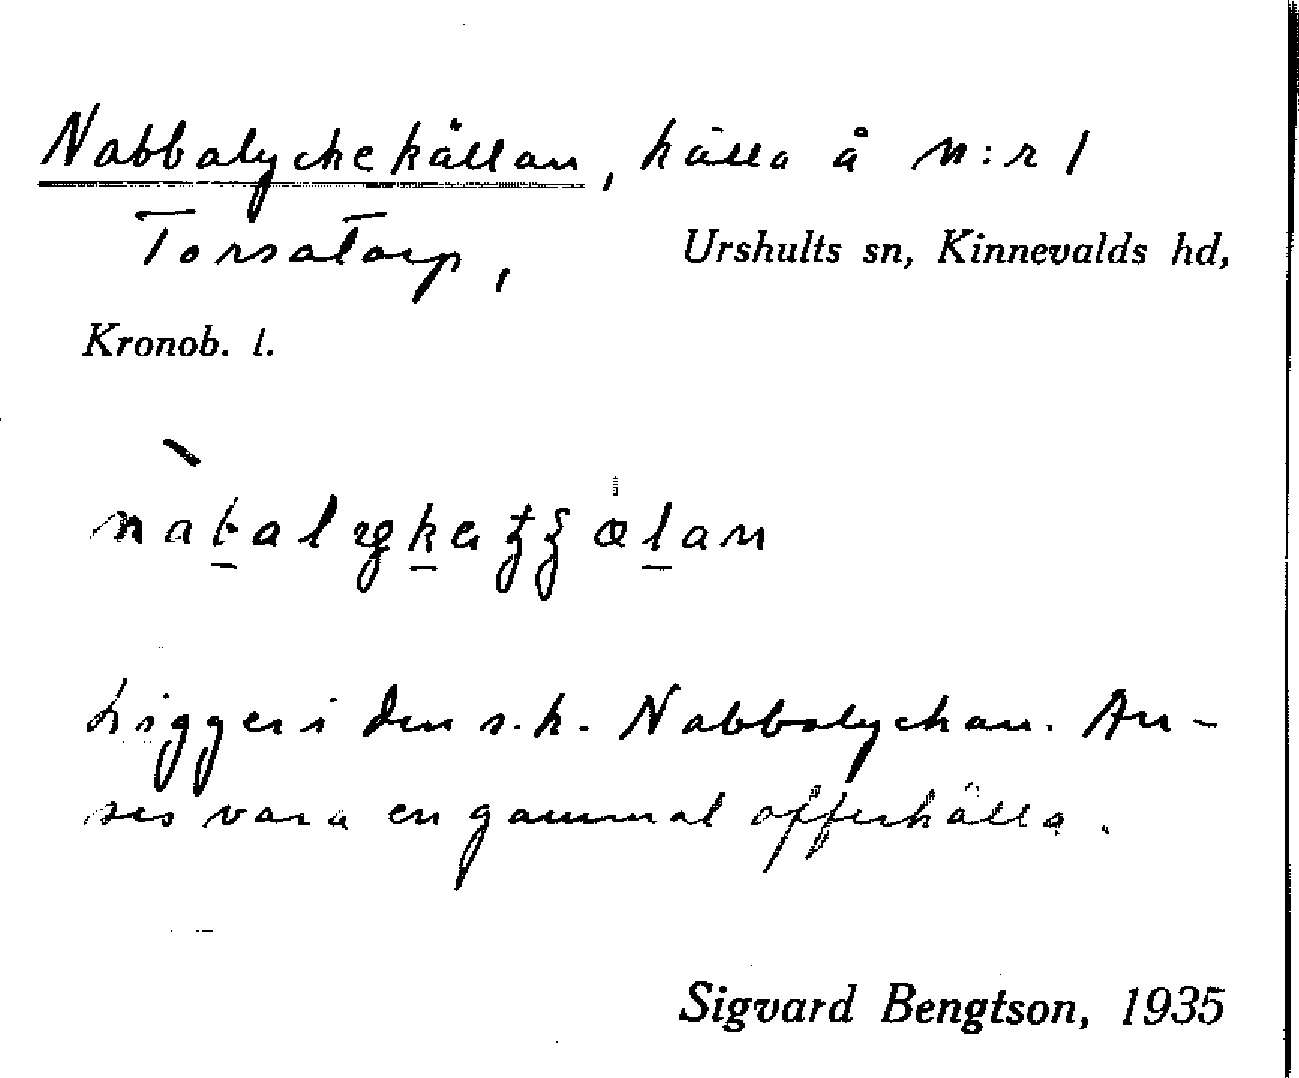 Nabbalyckekällan, källa å n:r 1
Torsatorp, Urshults sn, Kinnevalds hd,
Kronob. l.
Ligger i den s.k. Nabbalyckan. An-
ses vara en gammal offerkälla.
Sigvard Bengtson, 1935